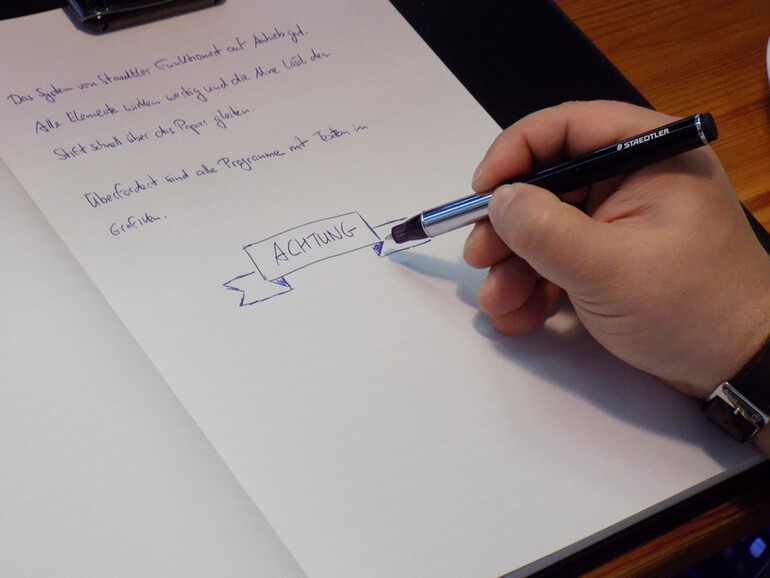 Das System von Staedtler Funktioniert auf Anhieb gut.
Alle Elemente wirken wertig und die Mine lässt den
Stift schnell über das Papier gleiten.
Überfordert sind alle Programme mit Texten in
Grafiken.
ACHTUNG
STAEDTLER